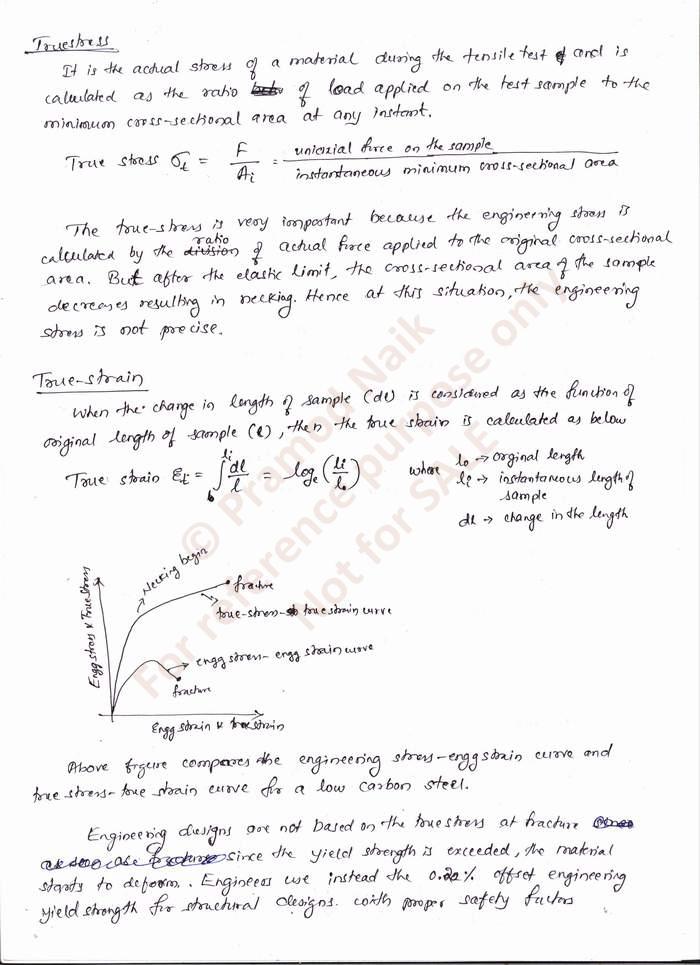 Truestress
It is the actual stress of a material during the tensile test and is
calculated as the ratio of load applied on the test sample to the
minimum cross-sectional area at any instant.
True stress σt = F/Ai = uniaxial force on the sample / instantaneous minimum cross-sectional area
The true-stress is very important because the engineering stress is
calculated by the ratio of actual force applied to the original cross-sectional
area. But after the elastic limit, the cross-sectional area of the sample
decreases resulting in necking. Hence at this situation, the engineering
stress is not precise.
True-strain
When the change in length of sample (dl) is considered as the function of
original length of sample (l), then the true strain is calculated as below
True strain Et = ∫ li lo dl/l = loge (li/lo) where lo → orginal length
li → instantaneous length of
sample
dl → change in the length
Engg stress × True stress
Necking begin
fracture
true-stress- true strain curve
engg stress- engg strain curve
fracture
Engg strain × true strain
Above figure compares the engineering stress-engg strain curve and
true stress-true strain curve for a low carbon steel.
Engineering designs are not based on the true stress at fracture
since the yield strength is exceeded, the material
starts to deform. Engineers use instead the offset engineering
yield strength for structural designs. with proper safety factors
© Pramod Naik
For reference purpose only
Not for SALE